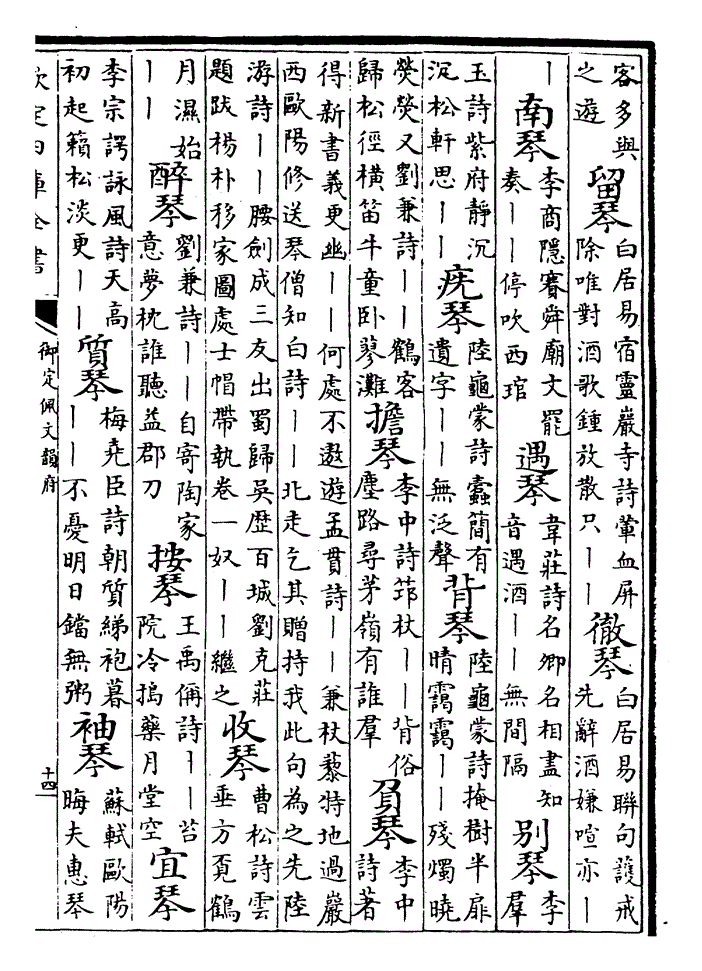 客多與
之遊
留琴
白居易宿靈巖寺詩葷血屏
除唯對酒歌鍾放散只丨丨
徹琴
白居易聯句護戒
先辭酒嫌喧亦丨
丨
南琴
李商隱賽舜廟文罷
奏丨丨停吹西琯
遇琴
韋莊詩名卿名相盡知
音遇酒丨丨無間隔
别琴
李
羣
玉詩紫府靜沉
沉松軒思丨丨
疣琴
陸龜蒙詩蠹簡有
遺字丨丨無泛聲
背琴
陸龜蒙詩掩樹半扉
晴靄靄丨丨殘燭曉
熒熒又劉兼詩丨丨鶴客
歸松徑橫笛牛童卧蓼灘
擔琴
李中詩筇杖丨丨背俗
塵路尋茅嶺有誰羣
負琴
李中
詩著
得新書義更幽丨丨何處不遨遊孟貫詩丨丨兼杖藜特地過巖
西歐陽修送琴僧知白詩丨丨北走乞其贈持我此句為之先陸
游詩丨丨腰劍成三友出蜀歸吳歴百城劉克莊
題跋楊朴移家圖處士帽帶執卷一奴丨丨繼之
收琴
曹松詩雲
垂方覔鶴
月濕始
丨丨
醉琴
劉兼詩丨丨自寄陶家
意夢枕誰聽益郡刀
按琴
王禹偁詩丨丨苔
院冷搗藥月堂空
宜琴
李宗諤詠風詩天高
初起籟松淡更丨丨
質琴
梅堯臣詩朝質綈袍暮
丨丨不憂明日鐺無粥
袖琴
蘇軾歐陽
晦夫惠琴
欽定四庫全書
御定佩文韻府
十四